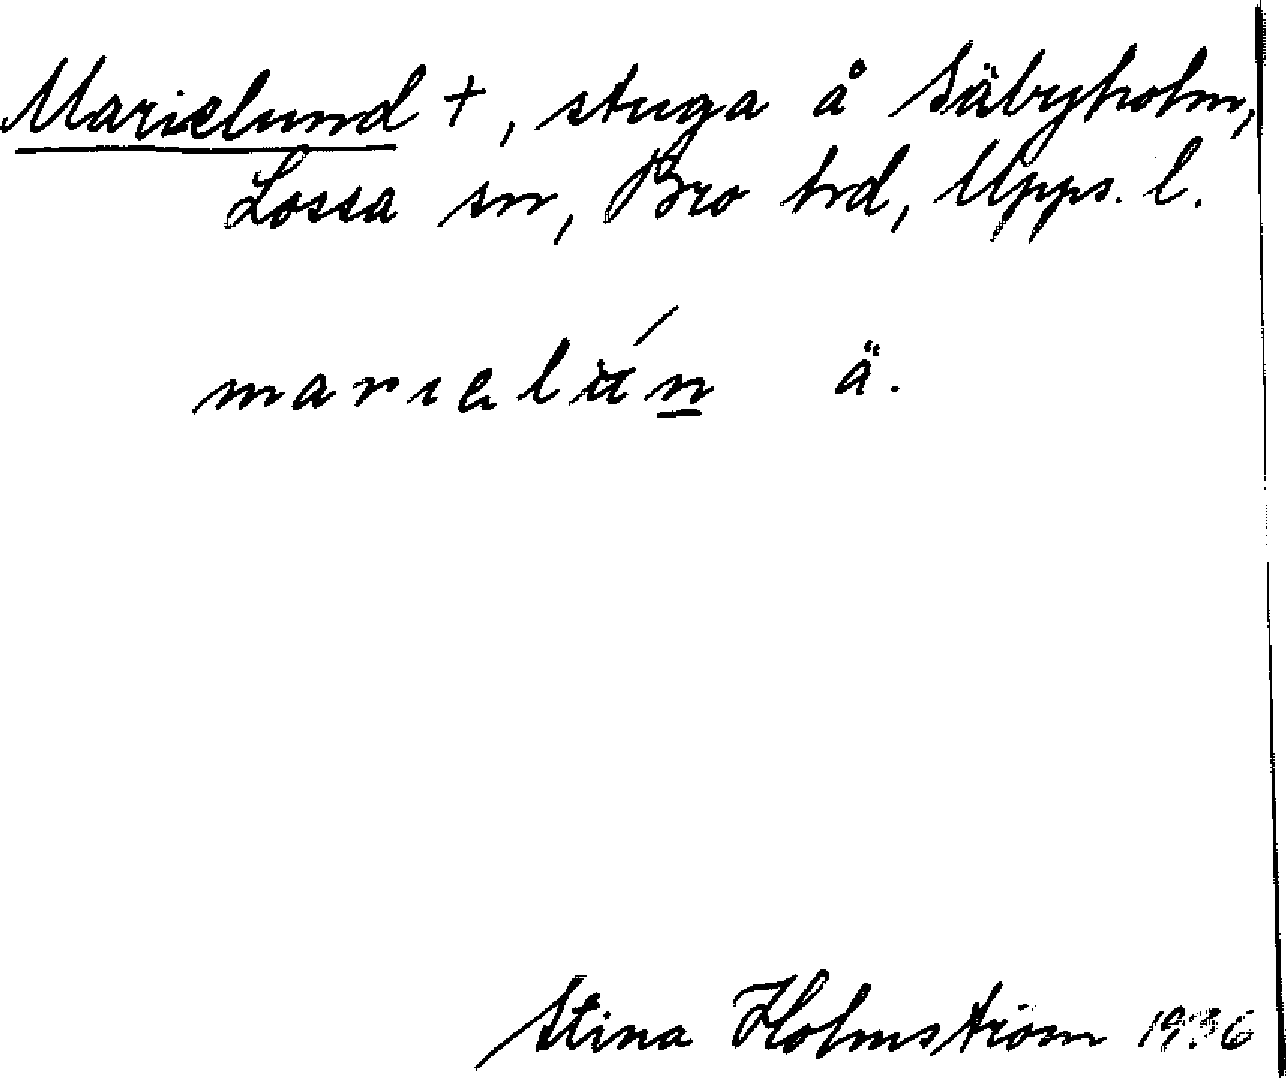 Marielund +, stuga å Säbyholm,
Lossa sn, Bro hrd, Upps. l.
marielún ä.
Stina Holmström 1936